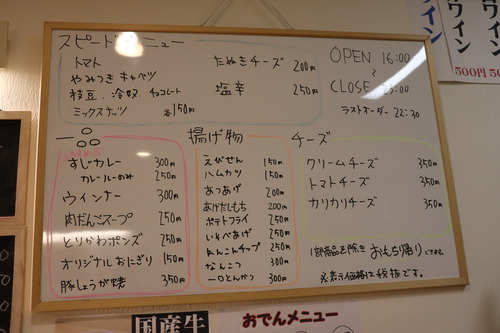 スピードメニュー
トマト
やみつきキャベツ
枝豆、冷奴、チョコレート
ミックスナッツ 各150円
たぬきチーズ 200円
塩辛 250円
OPEN 16:00
〜
CLOSE 23:00
ラストオーダー 22:30
一品
すじカレー 300円
カレールーのみ 250円
ウィンナー 300円
肉だんごスープ 250円
とりかわポンズ 250円
オリジナルおにぎり 150円
豚しょうが焼 350円
揚げ物
えびせん 150円
ハムカツ 150円
あつあげ 200円
あげだしもち 200円
ポテトフライ 250円
いそべあげ 250円
れんこんチップ 250円
なんこつ 300円
一口とんかつ 300円
チーズ
クリームチーズ 350円
トマトチーズ 350円
カリカリチーズ 350円
1部商品を除き おもち帰り できます。
※表示価格は税抜です。
ワイン
ワイン
500円
国産牛
おでんメニュー